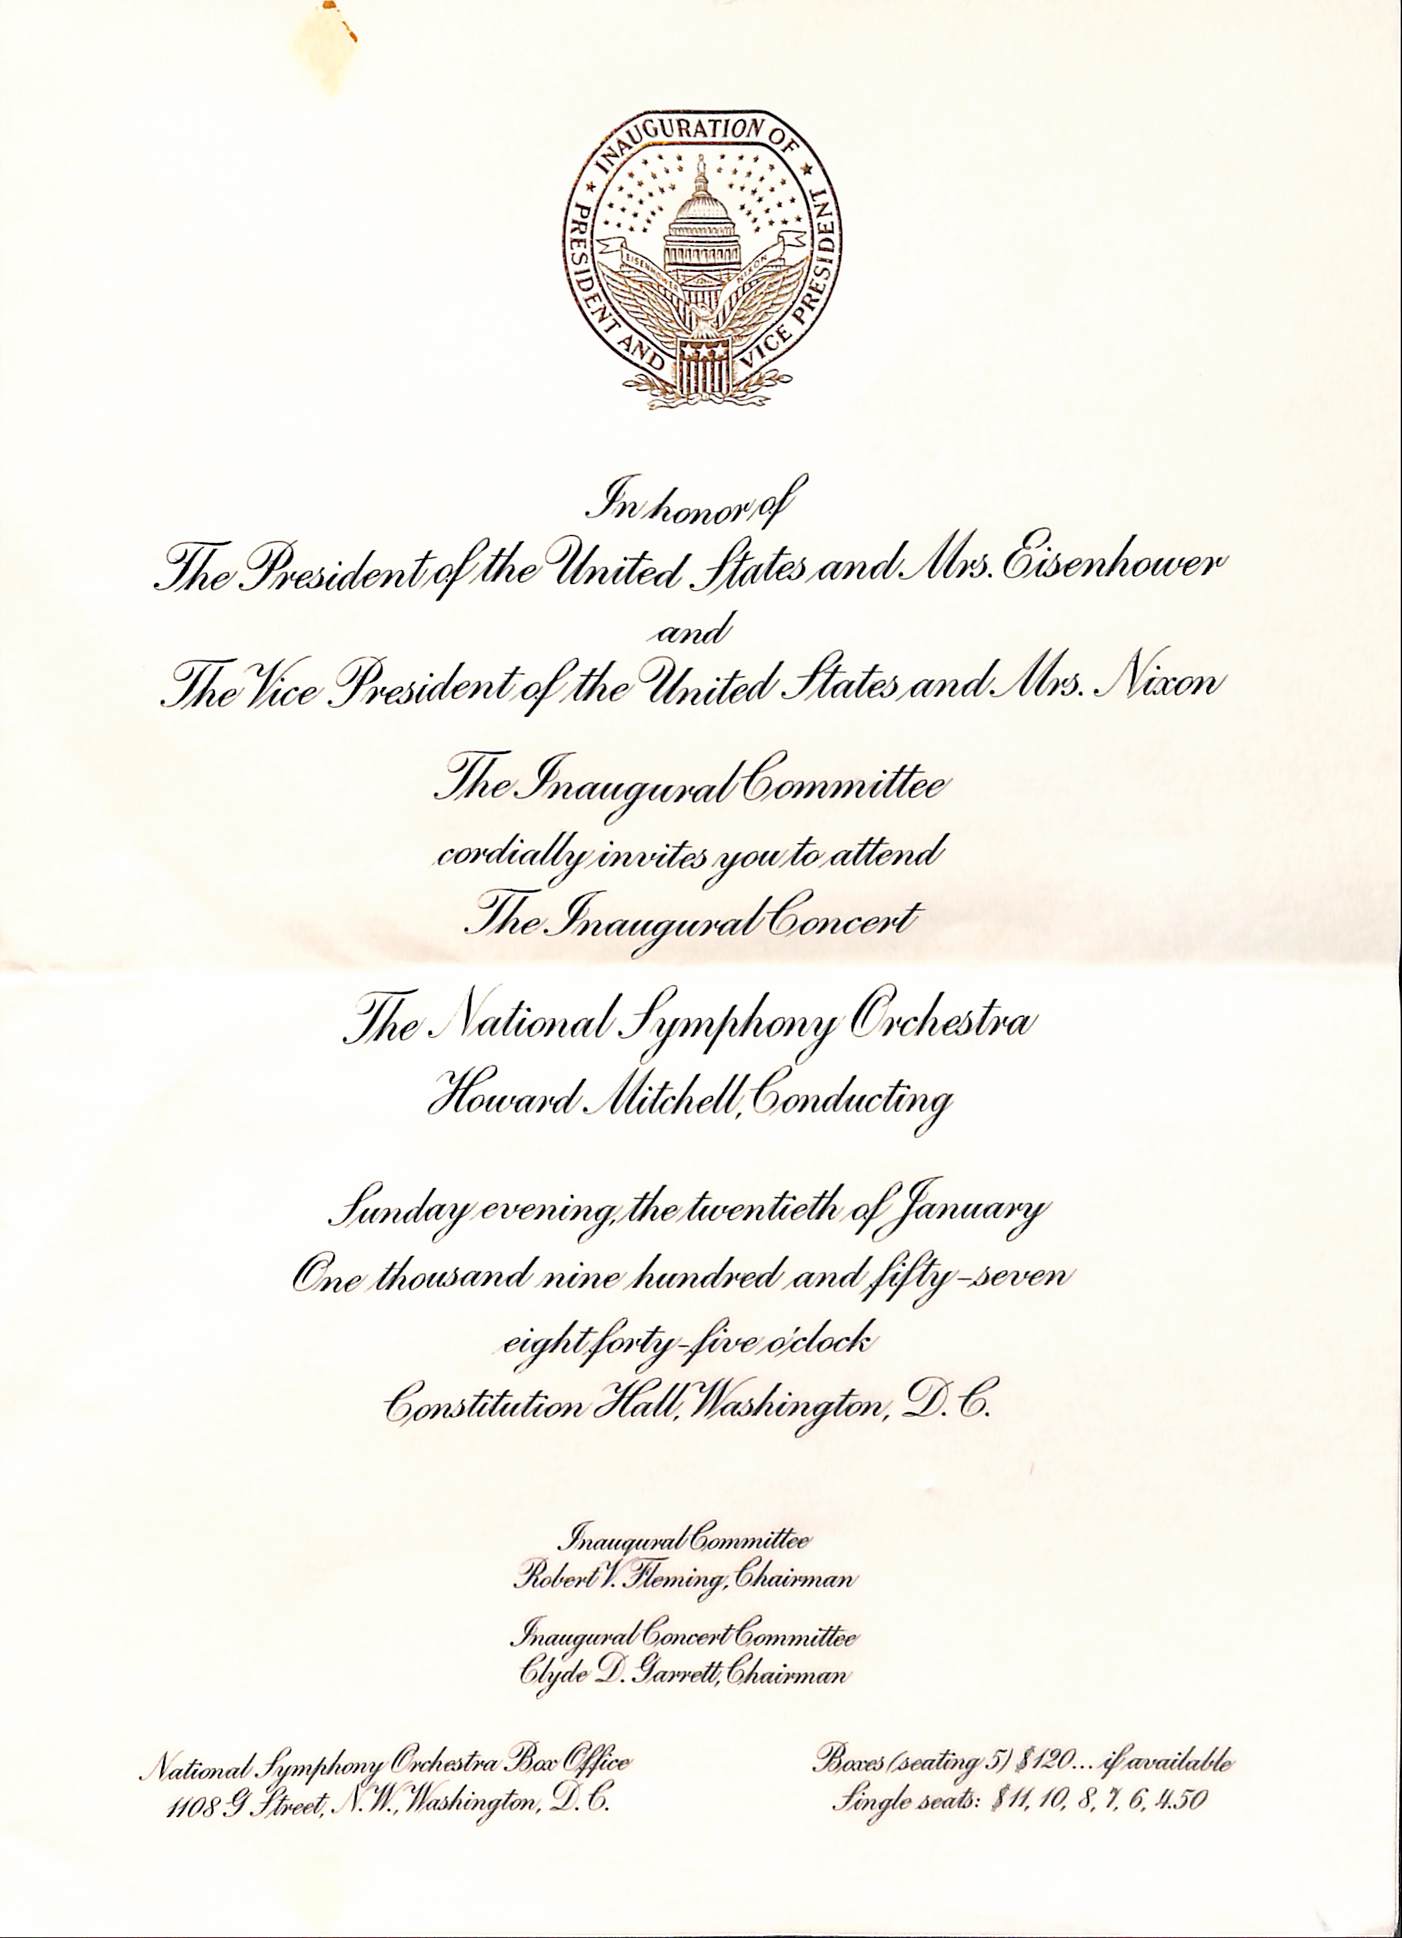 ★ INAUGURATION OF ★
PRESIDENT AND VICE PRESIDENT
EISENHOWER NIXON
In honor of
The President of the United States and Mrs. Eisenhower
and
The Vice President of the United States and Mrs. Nixon
The Inaugural Committee
cordially invites you to attend
The Inaugural Concert
The National Symphony Orchestra
Howard Mitchell, Conducting
Sunday evening, the twentieth of January
One thousand nine hundred and fifty-seven
eight forty-five o'clock
Constitution Hall, Washington, D. C.
Inaugural Committee
Robert V. Fleming, Chairman
Inaugural Concert Committee
Clyde D. Garrett, Chairman
National Symphony Orchestra Box Office
1108 G Street, N. W., Washington, D. C.
Boxes (seating 5) $120... if available
Single seats: $11, 10, 8, 7, 6, 4.50